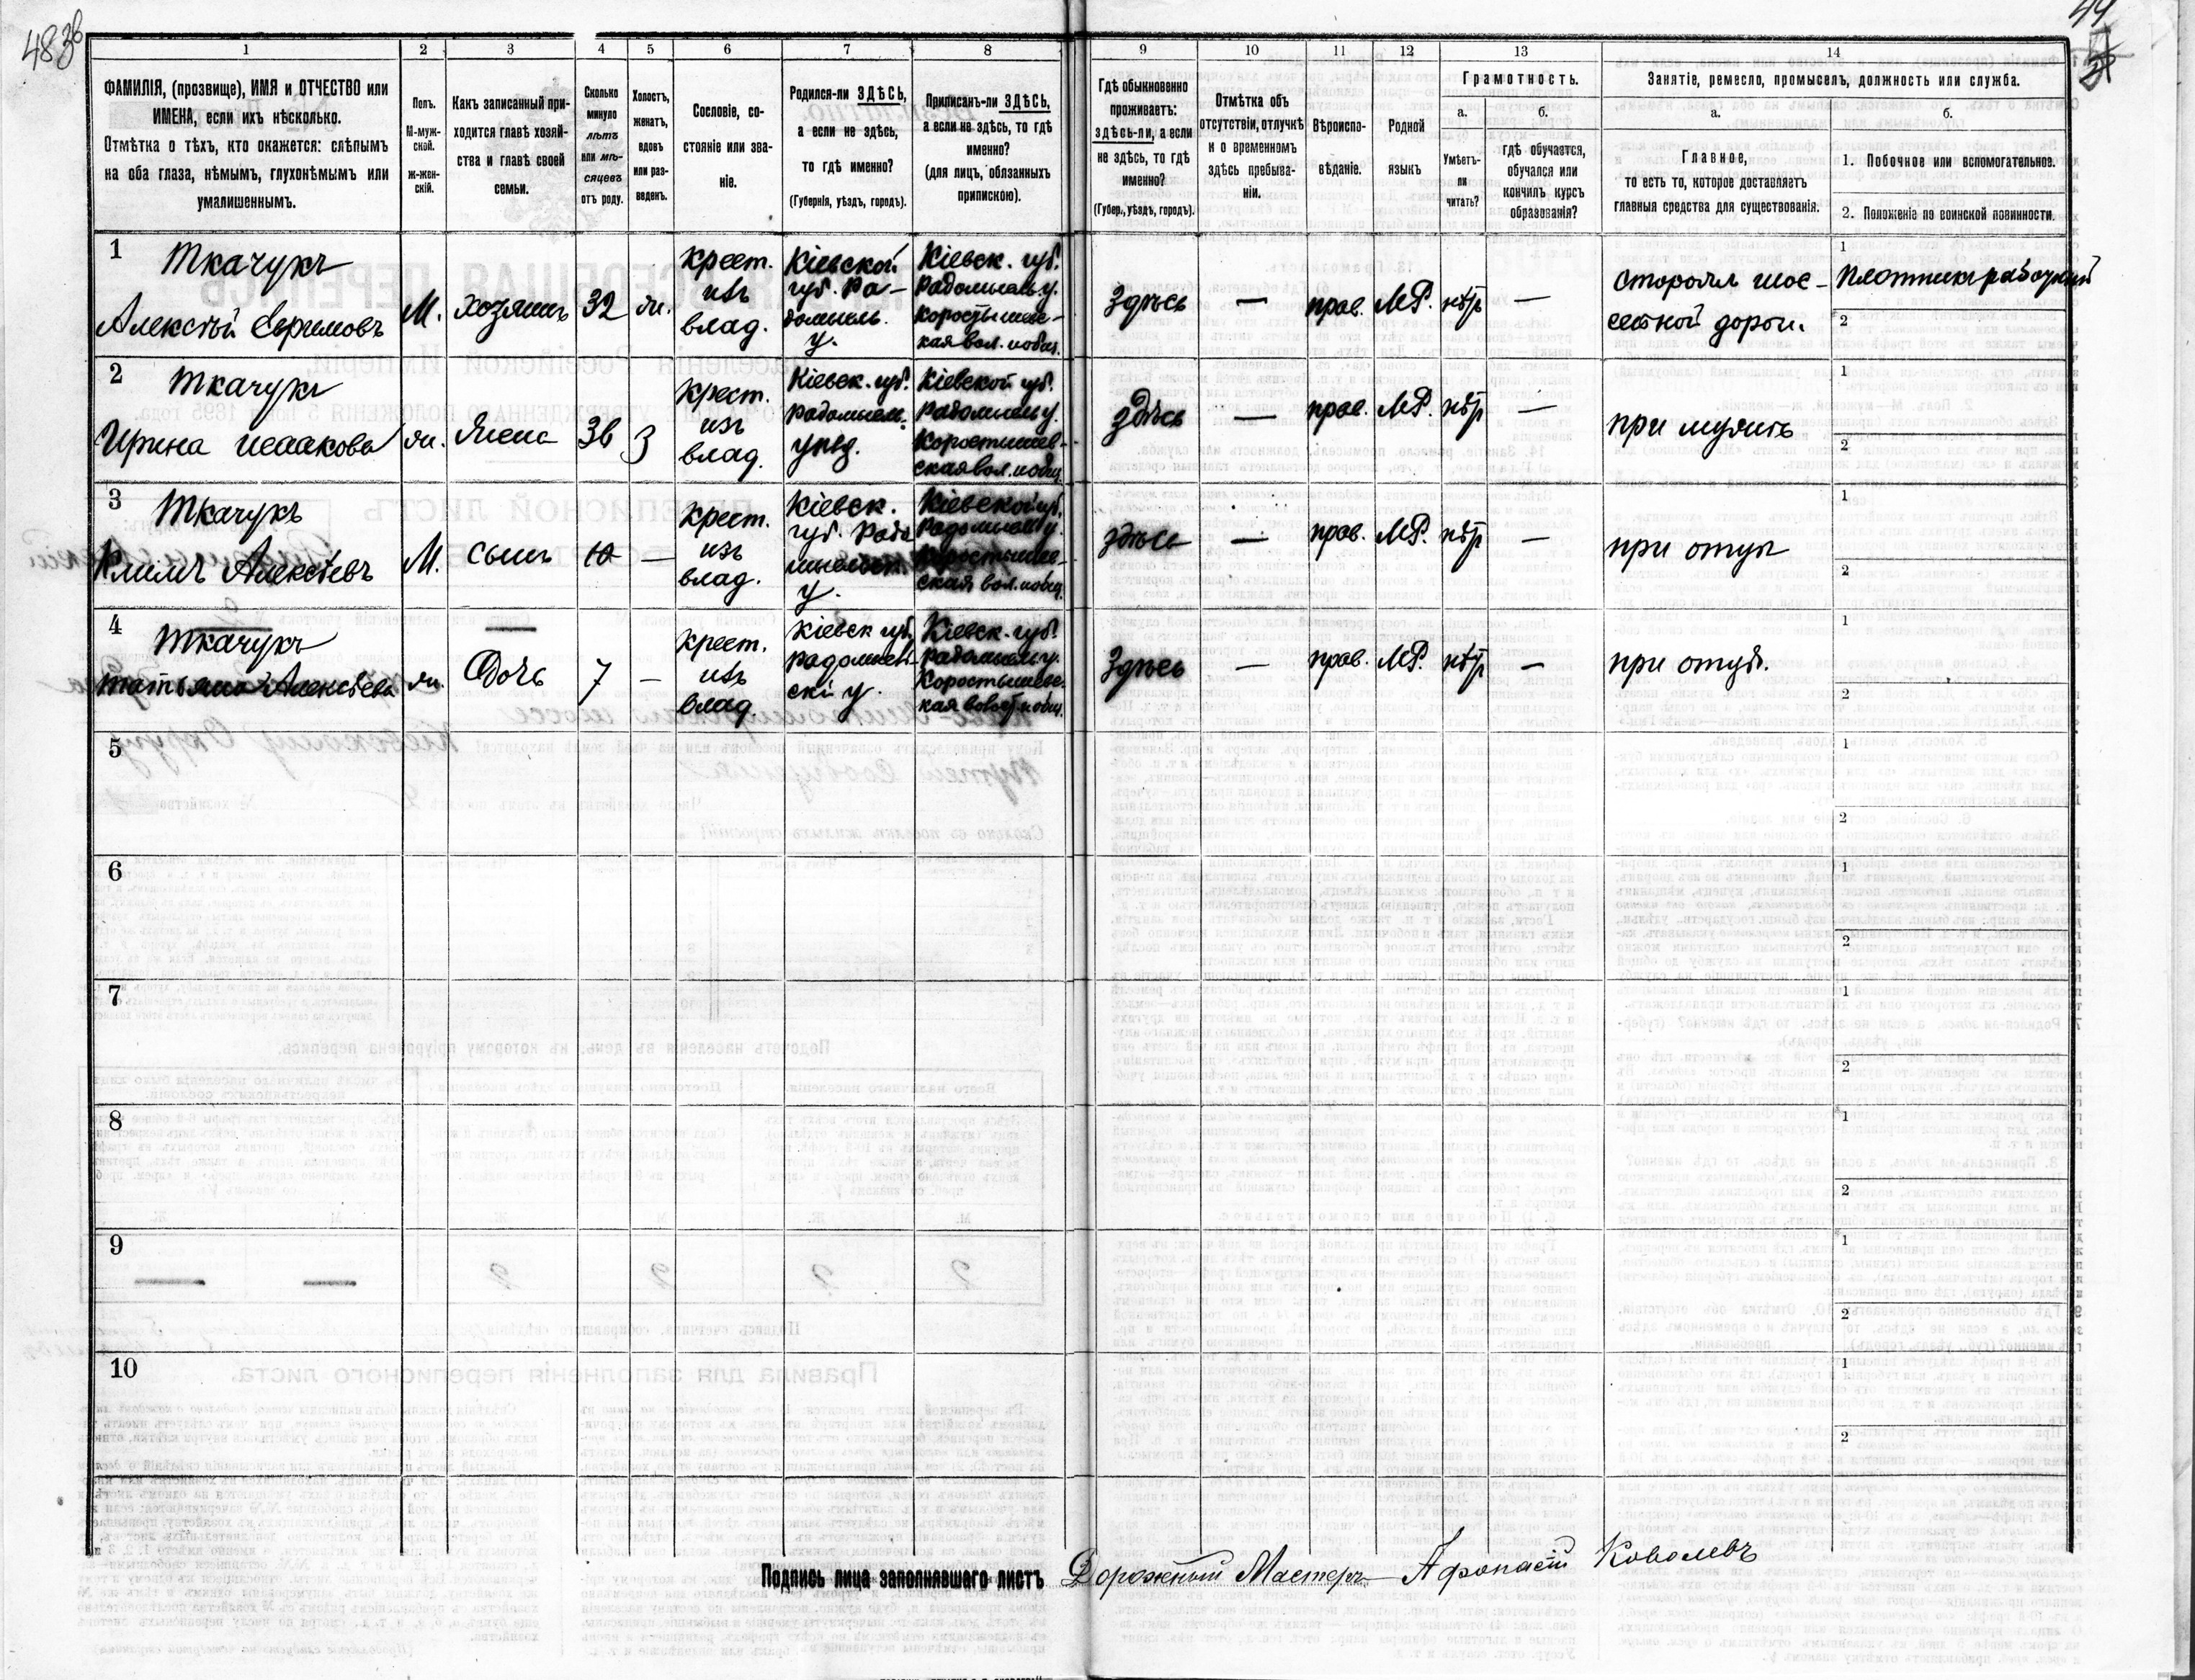 483б
44
1 2 3 4 5 6 7 8 9 10 11 12 13 14
ФАМИЛІЯ, (прозвище), ИМЯ и ОТЧЕСТВО или
ИМЕНА, если ихъ нѣсколько.
Отмѣтка о тѣхъ, кто окажется: слѣпымъ
на оба глаза, нѣмымъ, глухонѣмымъ или
умалишеннымъ.
Полъ.
М-муж-
ской.
ж-жен-
скій.
Какъ записанный при-
ходится главѣ хозяй-
ства и главѣ своей
семьи.
Сколько
минуло
лѣтъ
или мѣ-
сяцевъ
отъ роду.
Холостъ,
женатъ,
вдовъ
или раз-
веденъ.
Сословіе, со-
стояніе или зва-
ніе.
Родился-ли ЗДѢСЬ,
а если не здѣсь,
то гдѣ именно?
(Губернія, уѣздъ, городъ).
Приписанъ-ли ЗДѢСЬ,
а если не здѣсь, то гдѣ
именно?
(для лицъ, обязанныхъ
припискою).
Гдѣ обыкновенно
проживаетъ:
здѣсь-ли, а если
не здѣсь, то гдѣ
именно?
(Губер., уѣздъ, городъ).
Отмѣтка объ
отсутствіи, отлучкѣ
и о временномъ
здѣсь пребыва-
ніи.
Вѣроиспо-
вѣданіе.
Родной
языкъ
Грамотность.
а.
Умѣетъ-
ли
читать?
б.
Гдѣ обучается,
обучался или
кончилъ курсъ
образованія?
Занятіе, ремесло, промыселъ, должность или служба.
а.
Главное,
то есть то, которое доставляетъ
главныя средства для существованія.
б.
1. Побочное или вспомогательное.
2. Положеніе по воинской повинности.
1
Ткачукъ
Алексѣй Ефимовъ
М.
хозяинъ
32
ж.
крест.
изъ
влад.
Кіевской
губ. Ра-
домысль.
у.
Кіевск. губ.
Радомысль у.
Коростышев-
кая вол.
Здѣсь
—
прав.
МР.
нѣтъ
—
сторожъ шос-
сейной дороги.
1
Плотникъ рабочий
2
2
Ткачукъ
Ирина Исаакова
ж.
Жена
36
З
крест.
изъ
влад.
Кіевск. губ.
Радомысль.
уѣзд.
Кіевской губ.
Радомысль у.
Коростышев-
ская вол.
здѣсь
—
прав.
МР.
нѣтъ
—
при мужѣ
1
2
3
Ткачукъ
Климъ Алексѣевъ
М.
сынъ
10
—
крест.
изъ
влад.
Кіевск.
губ. Радо
мысльск.
у.
Кіевской губ.
Радомысль у.
Коростышев-
ская вол.
здѣсь
—
прав.
МР.
нѣтъ
—
при отцѣ
1
2
4
Ткачукъ
Татьяна Алексѣева
ж.
Дочь
7
—
крест.
изъ
влад.
Кіевск губ.
Радомысль-
скій у.
Кіевск. губ.
Радомысль у.
Коростышевс-
кая волост.
Здѣсь
—
прав.
МР.
нѣтъ
—
при отцѣ.
1
2
5
1
2
6
1
2
7
1
2
8
1
2
9
1
2
10
1
2
Подпись лица заполнявшаго листъ Дорожный Мастеръ Афонасій Ковалевъ